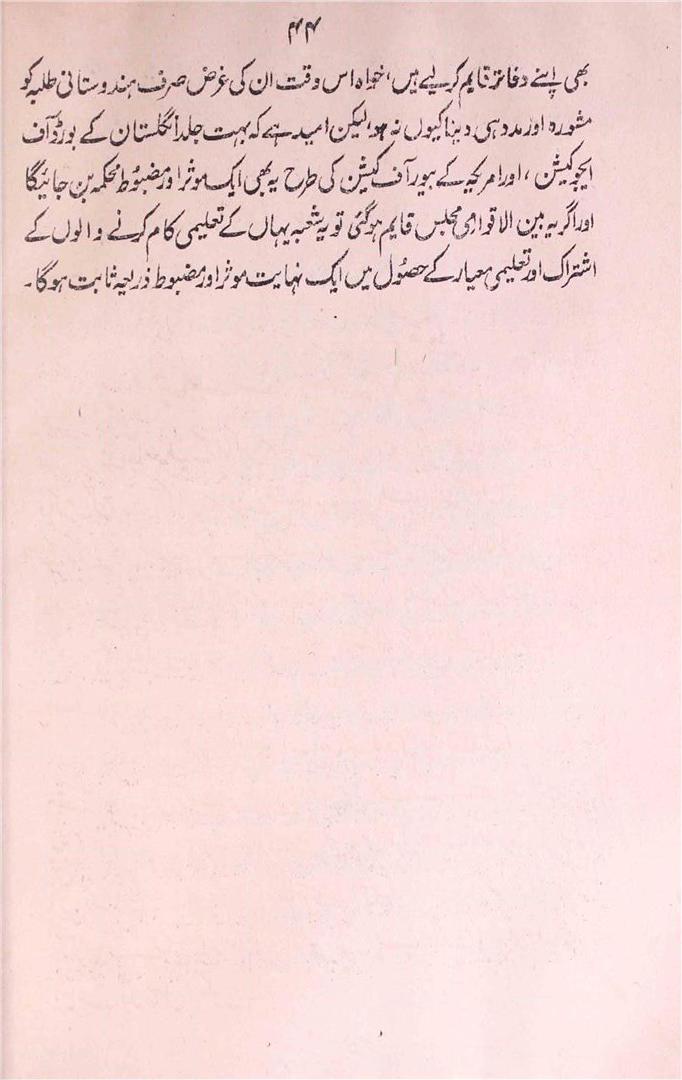 ۴۴
بھی اپنے دفاتر قایم کر لیے ہیں، خواہ اس وقت ان کی غرض صرف ہندوستانی طلبہ کو
مشورہ اور مدد ہی دینا کیوں نہ ہو، لیکن امید ہے کہ بہت جلد انگلستان کے بورڈ آف
ایجوکیشن، اور امریکہ کے بیورو آف ایجوکیشن کی طرح یہ بھی ایک موثر اور مضبوط محکمہ بن جائیگا
اور اگر یہ بین الاقوامی مجلس قایم ہو گئی تو یہ شعبہ یہاں کے تعلیمی کام کرنے والوں کے
اشتراک اور تعلیمی معیار کے حصول میں ایک نہایت موثر اور مضبوط ذریعہ ثابت ہوگا۔